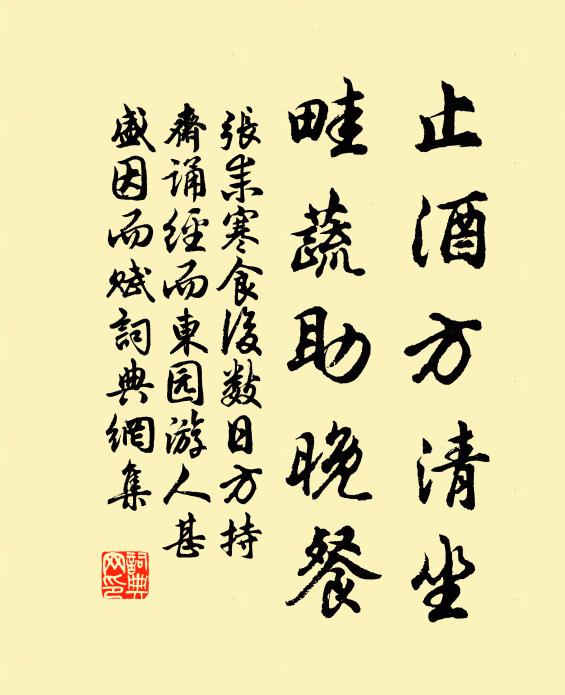 止酒方清坐
畦蔬助晚餐
張耒寒食後数日方持
齋诵經而東园游人甚
盛因而赋詞典網集
詞典
网印